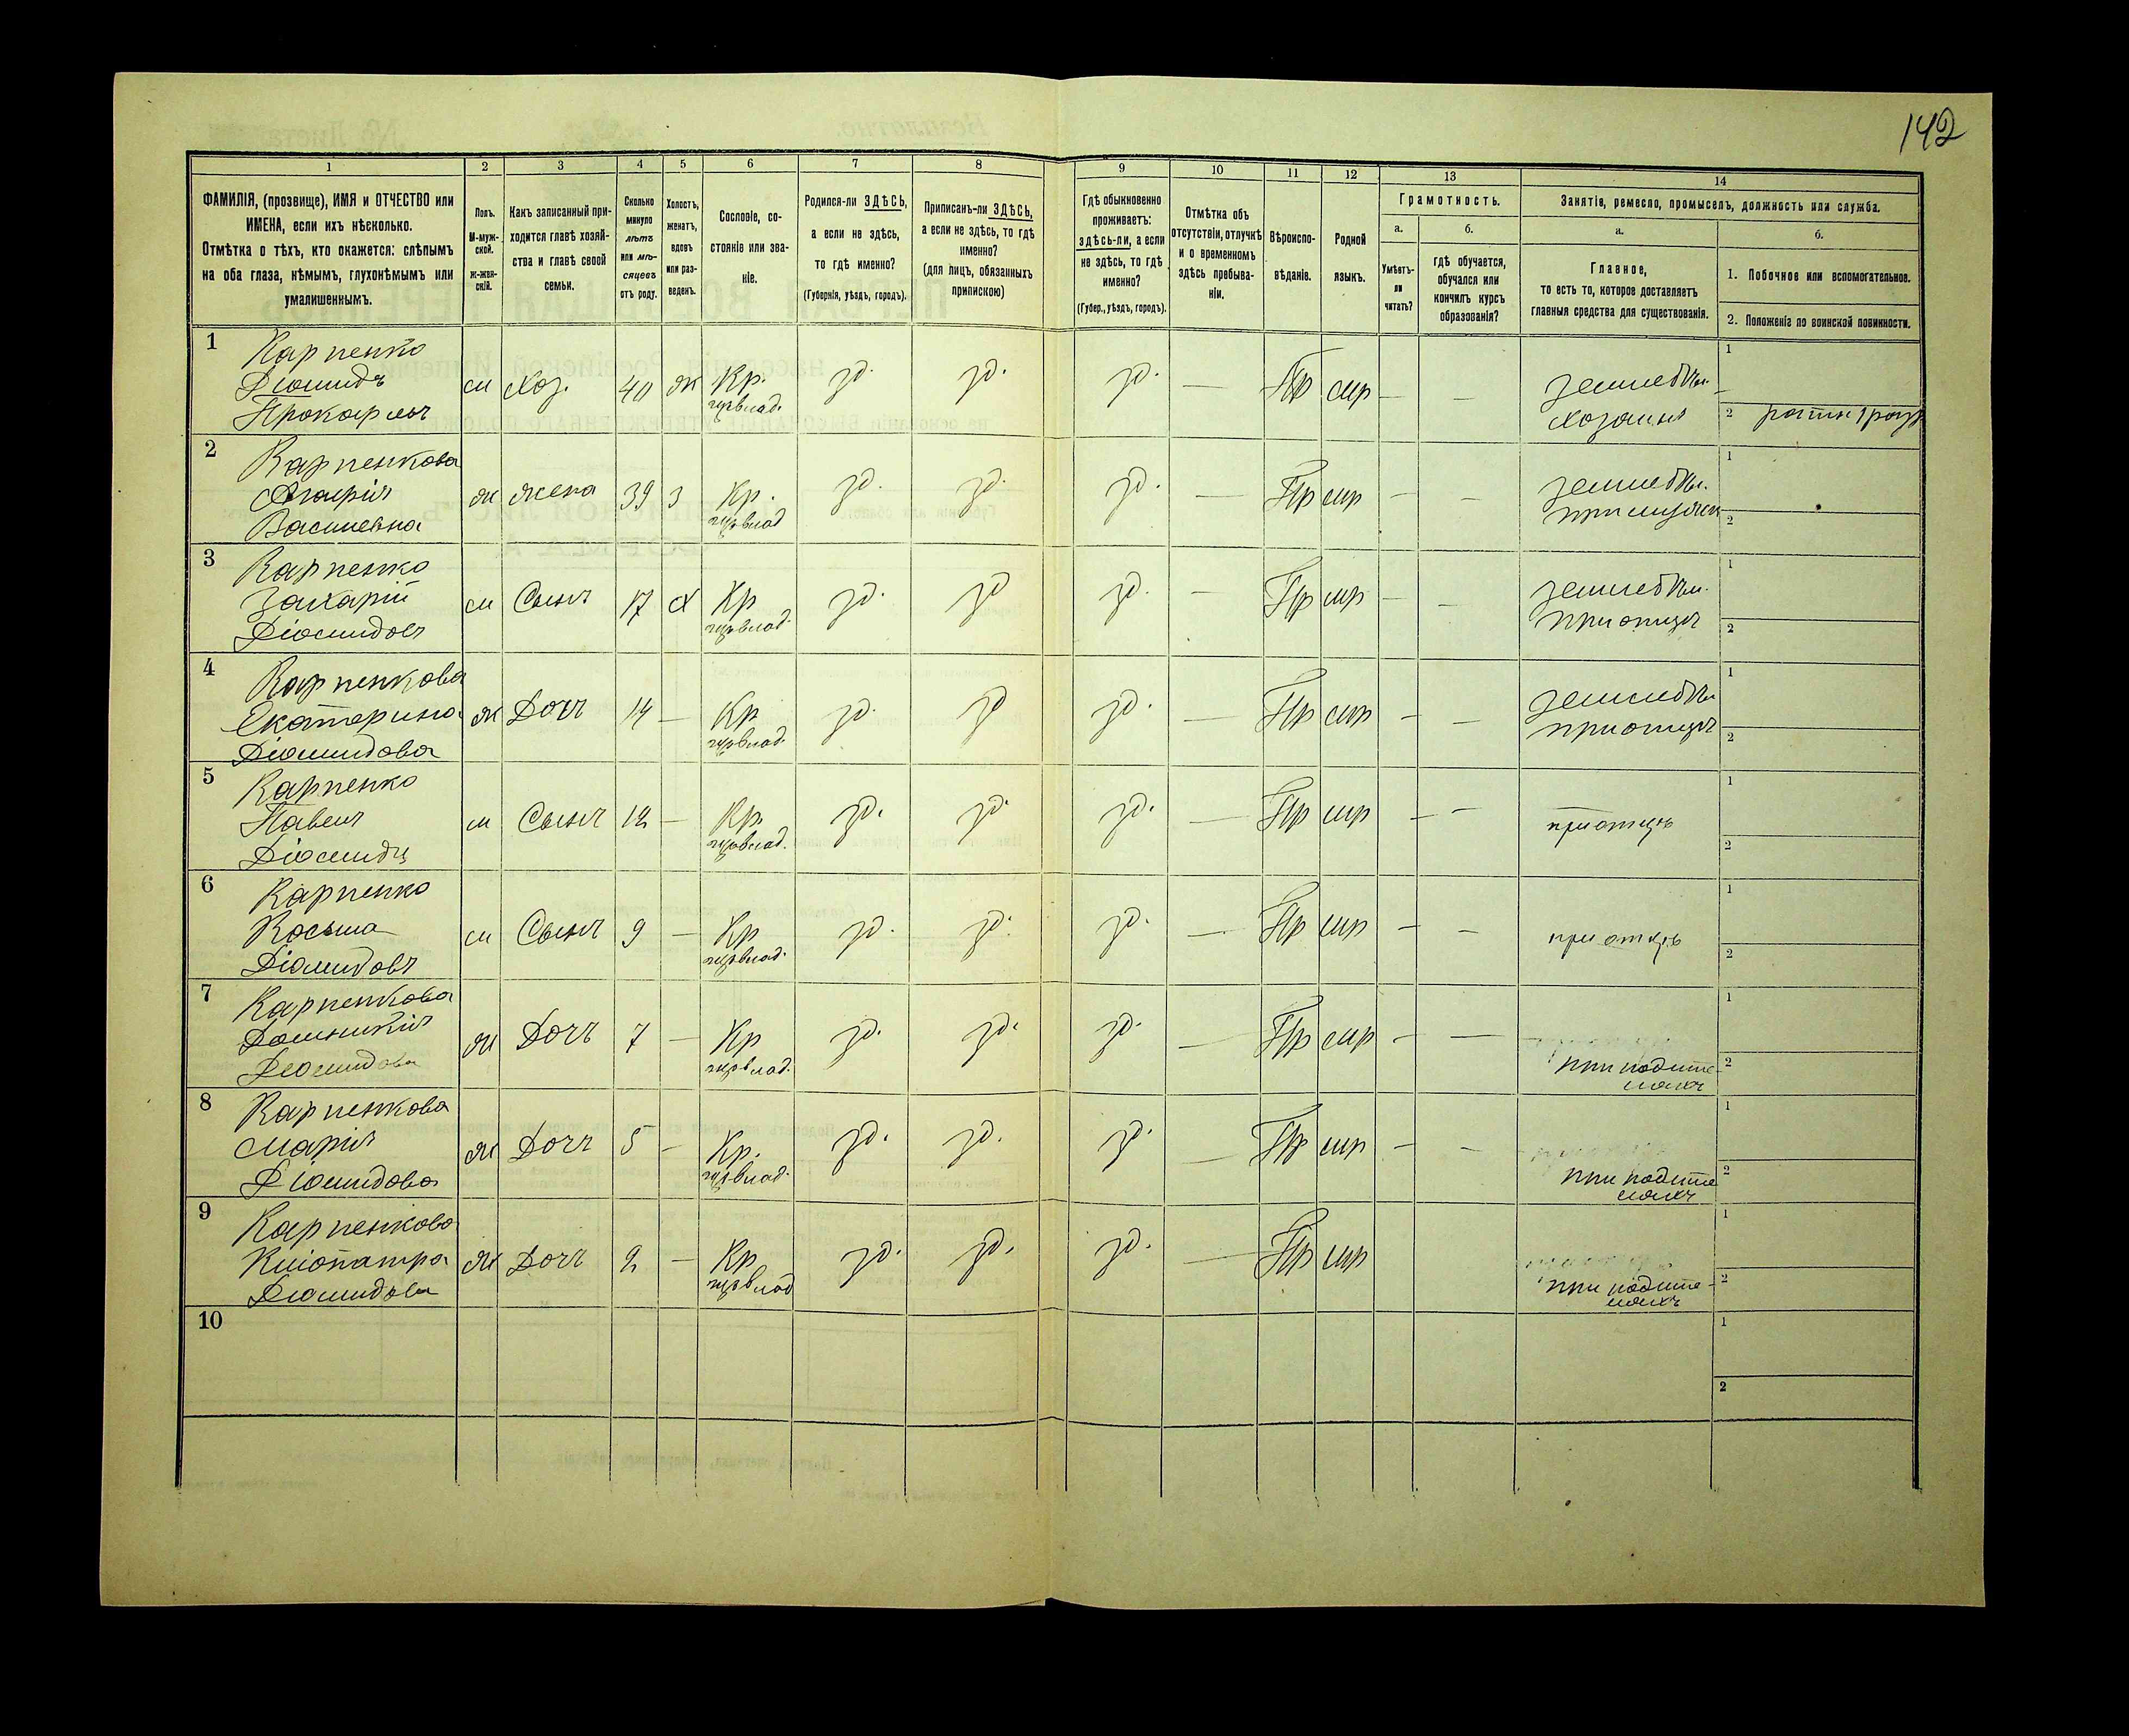 142
1
2
3
4
5
6
7
8
9
10
11
12
13
14
ФАМИЛІЯ, (прозвище), ИМЯ и ОТЧЕСТВО или
ИМЕНА, если ихъ нѣсколько.
Отмѣтка о тѣхъ, кто окажется: слѣпымъ
на оба глаза, нѣмымъ, глухонѣмымъ или
умалишеннымъ.
Полъ.
М-муж-
ской.
ж-жен-
скій.
Какъ записанный при-
ходится главѣ хозяй-
ства и главѣ своей
семьи.
Сколько
минуло
лѣтъ
или мѣ-
сяцевъ
отъ роду.
Холостъ,
женатъ,
вдовъ
или раз-
веденъ.
Сословіе, со-
стояніе или зва-
ніе.
Родился-ли ЗДѢСЬ,
а если не здѣсь,
то гдѣ именно?
(Губернія, уѣздъ, городъ).
Приписанъ-ли ЗДѢСЬ,
а если не здѣсь, то гдѣ
именно?
(для лицъ, обязанныхъ
припискою)
Гдѣ обыкновенно
проживаетъ:
здѣсь-ли, а если
не здѣсь, то гдѣ
именно?
(Губер., уѣздъ, городъ).
Отмѣтка объ
отсутствіи, отлучкѣ
и о временномъ
здѣсь пребыва-
ніи.
Вѣроиспо-
вѣданіе.
Родной
языкъ.
Грамотность.
а.
Умѣетъ-
ли
читать?
б.
гдѣ обучается,
обучался или
кончилъ курсъ
образованія?
Занятіе, ремесло, промыселъ, должность или служба.
а.
Главное,
то есть то, которое доставляетъ
главныя средства для существованія.
б.
1. Побочное или вспомогательное.
2. Положеніе по воинской повинности.
1
Карпенко
Діомидъ
Прокофьев
м Хоз. 40 ж Кр. зд. зд. зд. — Пр мр — —
хозяинъ
1
2
2
Карпенкова
Василевна
ж жена 39 з Кр. зд. зд. зд. — Пр мр — —
1
2
3
Карпенко
Захарій
Діомидовъ
м Сынъ 17 х Кр зд. зд зд. — Пр мр — —
при отцѣ
1
2
4
Карпенкова
Екатерина
Діомидова
ж Дочь 14 — Кр зд. зд зд. — Пр мр — —
при отцѣ
1
2
5
Карпенко
Павелъ
м Сынъ 12 — Кр. зд. зд. зд. — Пр мр — —
при отцѣ
1
2
6
Карпенко
Косьма
Діомидовъ
м Сынъ 9 — Кр зд. зд. зд. — Пр мр — —
при отцѣ
1
2
7
Карпенкова
Домникія
Діомидова
ж Дочь 7 — Кр зд. зд. зд. — Пр мр — —
при родите-
ляхъ
1
2
8
Карпенкова
Марія
Діомидова
ж Дочь 5 — Кр. зд. зд. зд. — Пр мр — —
при родите
ляхъ
1
2
9
Карпенкова
Кліопатра
Діомидова
ж Дочь 2 — Кр зд. зд. зд. — Пр мр
при родите-
ляхъ
1
2
10
1
2